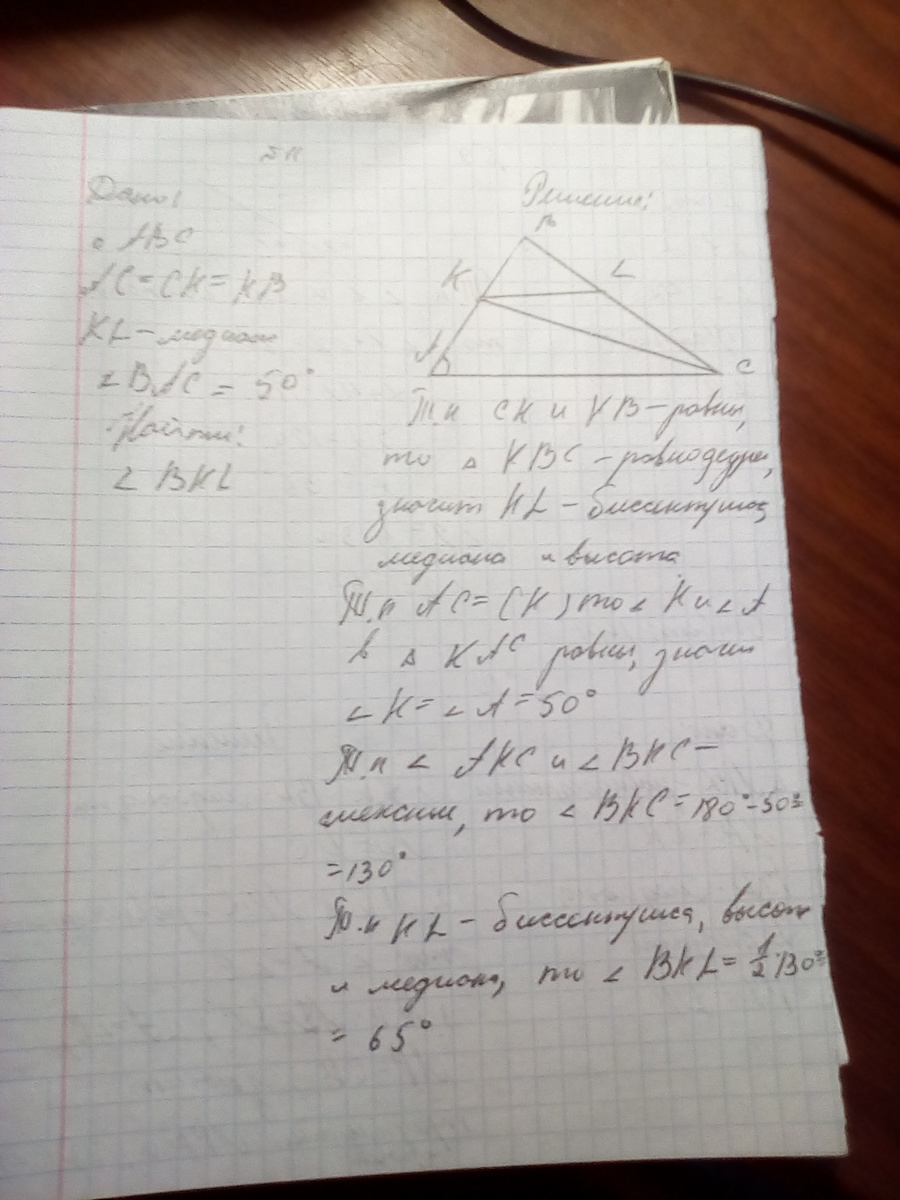 Дано:
△ ABC
AC = CK = KB
KL - медиана
∠ BAC = 50°
Найти:
∠ BKL
Решение:
B
K
L
A
C
Т.к CK и KB - равны,
то △ KBC - равнобедр,
значит KL - биссектриса,
медиана и высота
Т.к AC = CK, то ∠ K и ∠ A
в △ KAC равны, значит
∠ K = ∠ A = 50°
Т.к ∠ AKC и ∠ BKC -
смежные, то ∠ BKC = 180° - 50° =
= 130°
Т.к KL - биссектриса, высота
и медиана, то ∠ BKL = 1/2 · 130° =
= 65°